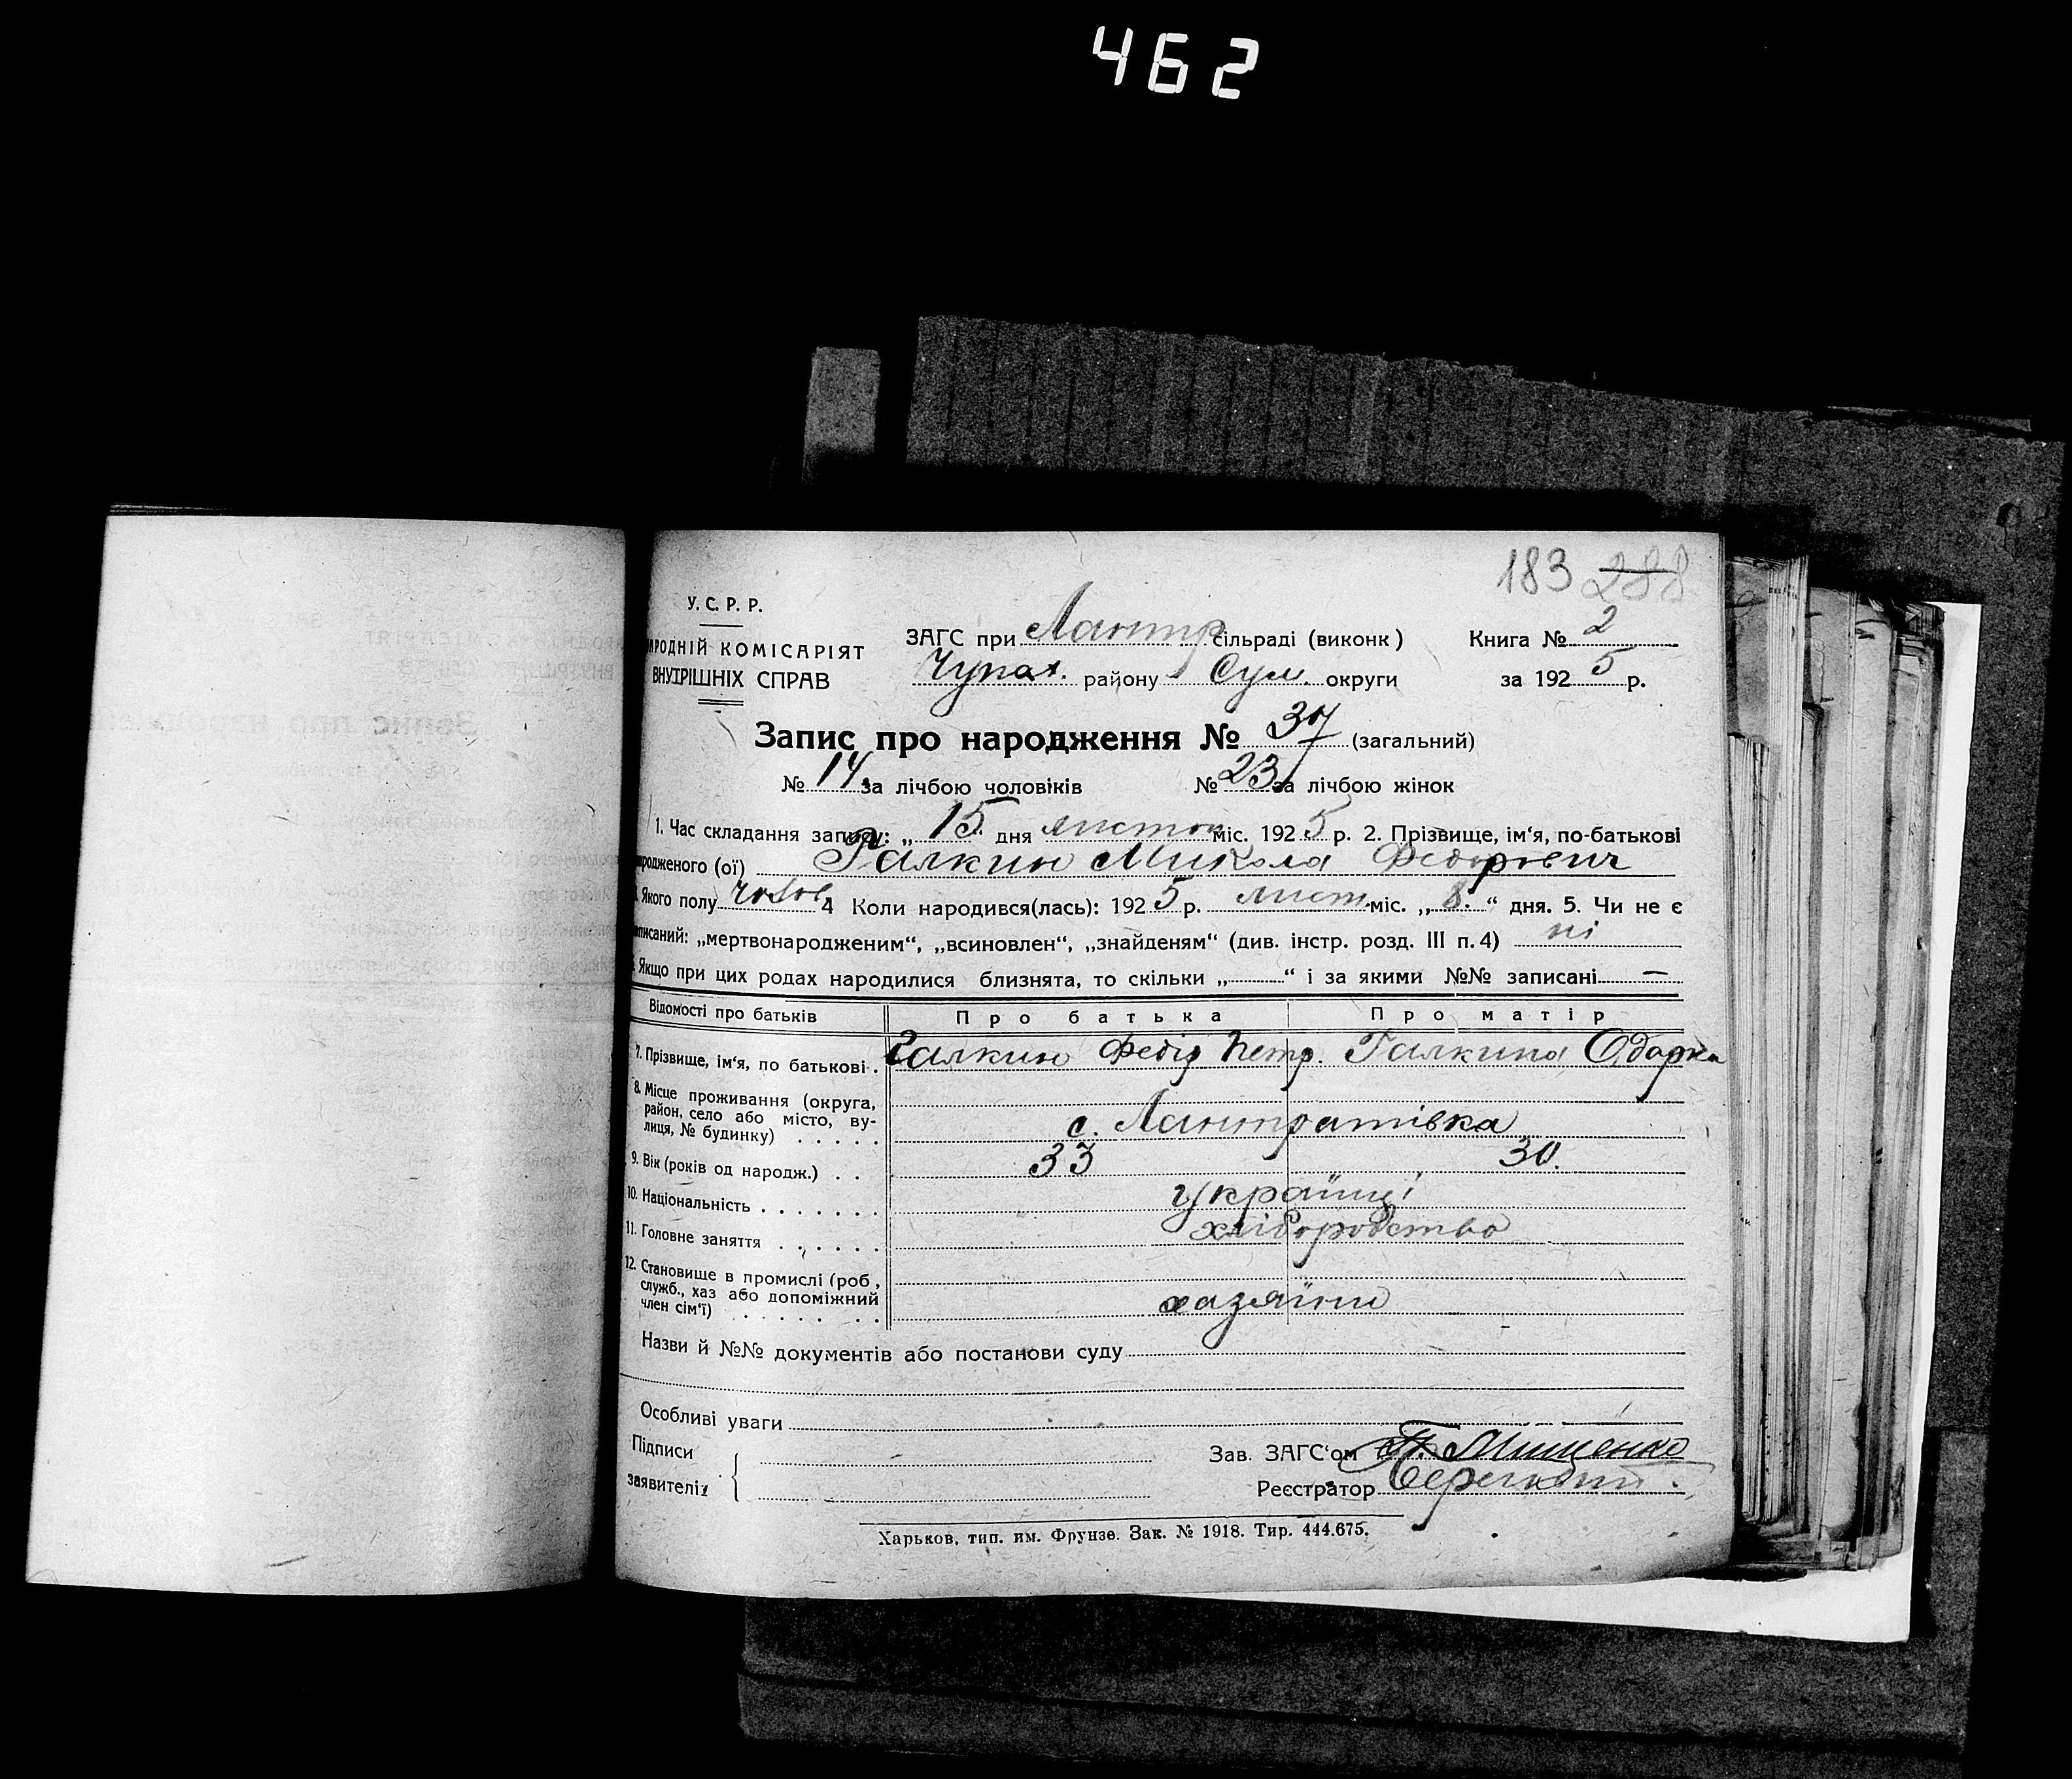 462
183 288
У. С. Р. Р.
РОДНІЙ КОМІСАРІЯТ
ВНУТРІШНІХ СПРАВ
ЗАГС при Лантр сільраді (виконк)
Чупах. району Сум. округи
Книга № 2
за 1925 р.
Запис про народження № 37 (загальний)
№ 14 за лічбою чоловіків № 23 за лічбою жінок
1. Час складання запису: „ 15 " дня листоп міс. 1925 р. 2. Прізвище, ім‘я, по-батькові
родженого (ої) Галкин Микола Федорович
Якого полу чолов. 4 Коли народився(лась): 1925 р. лист міс. „ 8. “ дня. 5. Чи не є
писаний: „мертвонародженим“, „всиновлен“, „знайденям“ (див. інстр. розд. III п. 4) ні
Якщо при цих родах народилися близнята, то скільки „ “ і за якими №№ записані —
Відомості про батьків Про батька Про матір
7. Прізвище, ім‘я, по батькові . Галкин Федір Петр. Галкина Одарка
8. Місце проживання (округа,
район, село або місто, ву-
лиця, № будинку) . . . . . с. Лантратівка
9. Вік (років од народж.) . . . 33 30.
10. Національність . . . . . . . українці
11. Головне заняття . . . . . . хліборобство
12. Становище в промислі (роб.,
служб., хаз або допоміжний
член сім‘ї) . . . . . . . . хазяїни
Назви й №№ документів або постанови суду
Особливі уваги
Підписи
заявителів
Зав. ЗАГС‘ом П. Мищенко
Реєстратор
Харьков, тип. им. Фрунзе. Зак. № 1918. Тир. 444.675.